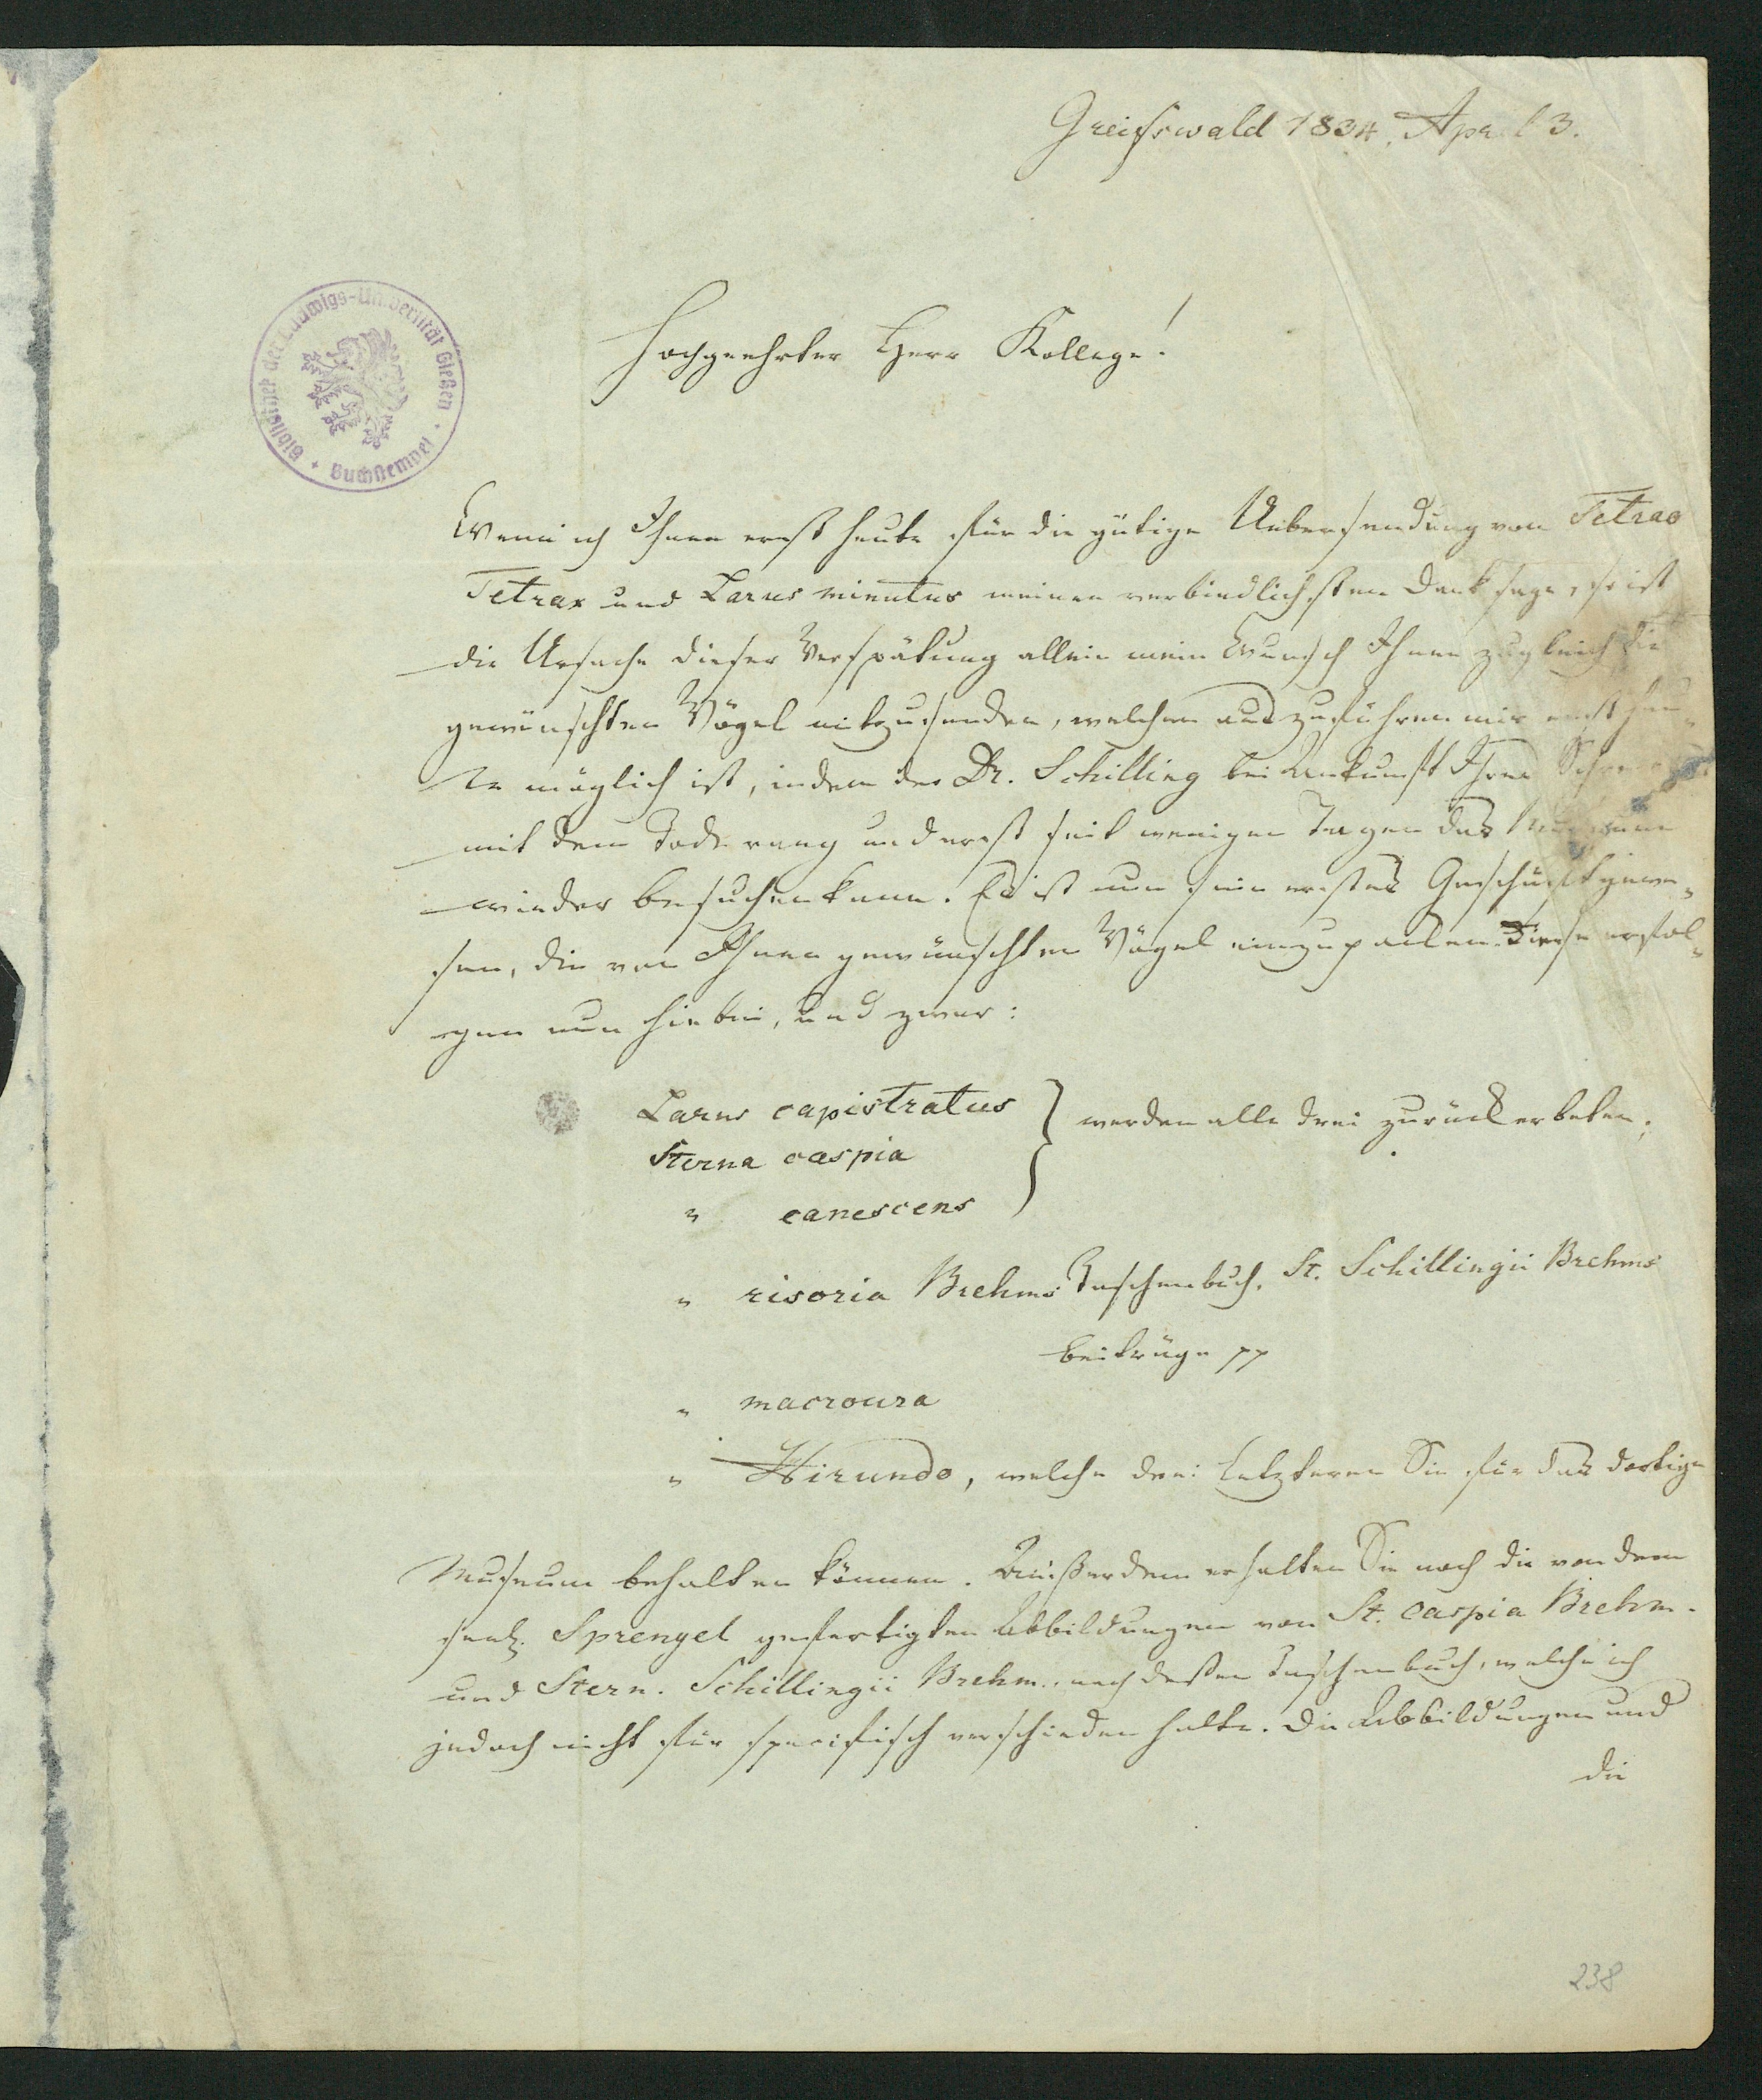 Greifswald 1834, April 3.
Bibliothek der Ludwigs-Universität Gießen · Buchstempel
Hochgeehrter Herr Kollege!
Wenn ich Ihnen erst heute für die gütige Uebersendung von Tetrao
Tetrax und Larus minutus meinen verbindlichsten Dank sage, so ist
die Ursache dieser Verspätung allein mein Wunsch Ihnen zugleich die
gewünschten Vögel mitzusenden, welchen auszuführen mir erst heu-
te möglich ist, indem der Dr. Schilling bei Ankunft Ihres
mit dem Tode rang und erst seit wenigen Tagen das Museum
wieder besuchen kann. Es ist nun sein erstes Geschäft gewe-
sen, die von Ihnen gewünschten Vögel einzupacken. Diese erfol-
gen nun hiebei, und zwar:
Larus capistratus } werden alle drei zurück erbeten;
Sterna caspia
" canescens
" risoria Brehms Taschenbuch. St. Schillingii Brehms
Beiträge pp
" macroura
" Hirundo, welche drei Letzteren Sie für das dortige
Museum behalten können. Außerdem erhalten Sie noch die von dem
Sprengel gefertigten Abbildungen von St. caspia Brehm.
und Stern. Schillingii Brehm. nach deßen Taschenbuch, welche ich
jedoch nicht für specifisch verschieden halte. Die Abbildungen und
die
238